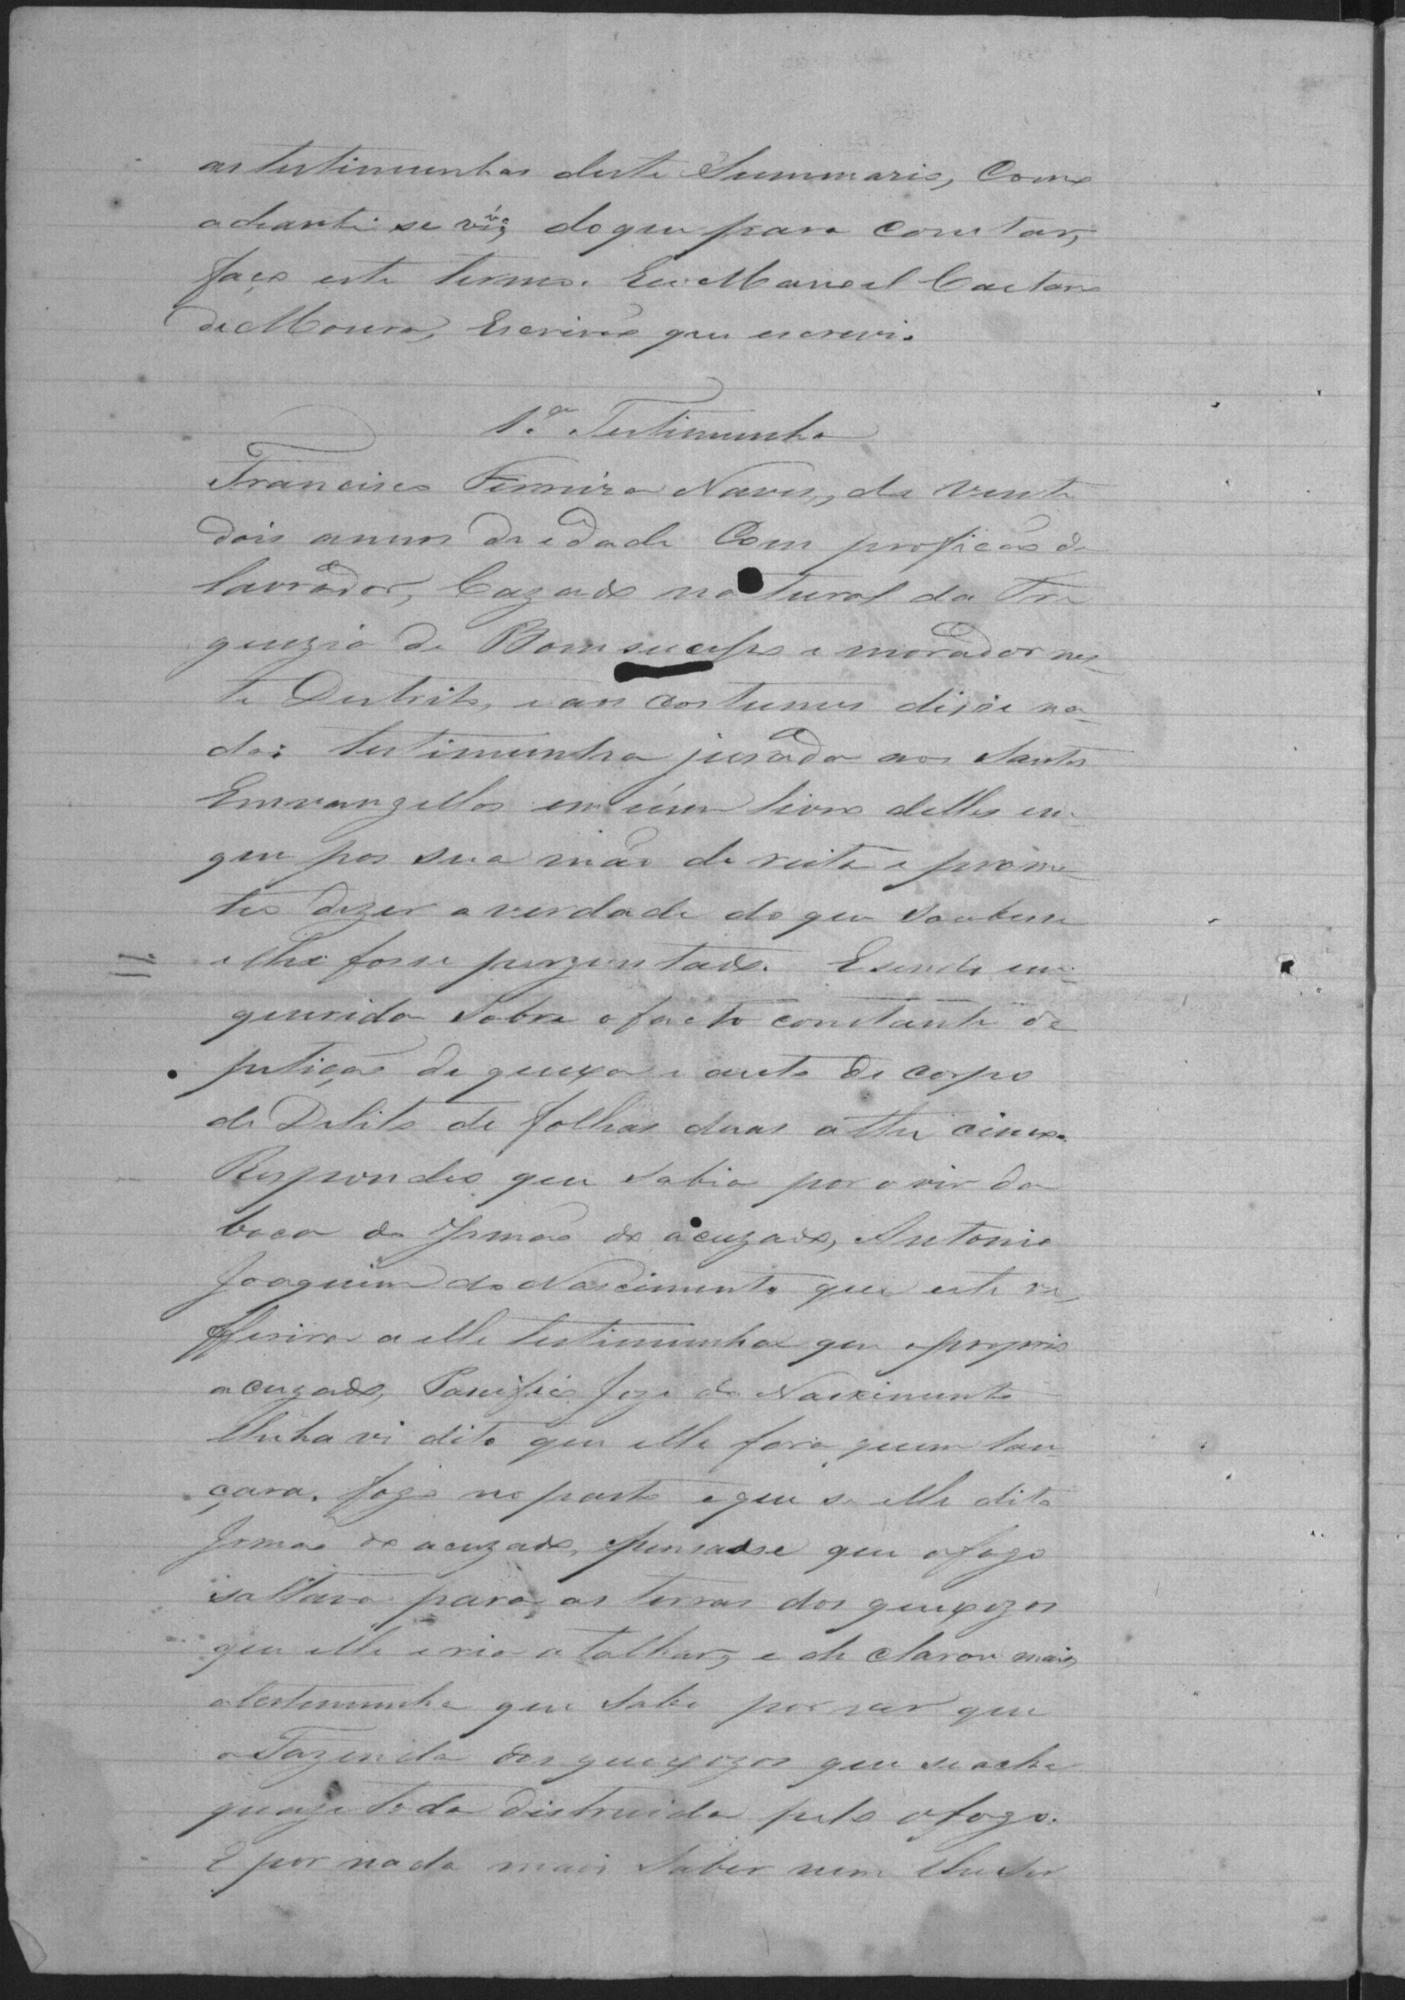 as testimunhas deste Summario, Como
adeante se vê; do que para constar,
faço este termo. Eu Manoel Caetano
de Moura, Escrivão que escrevi.
1ª Testimunha
Francisco Ferreira Naves, de vente
dois annos de edade Com proficão de
lavrador, Cazado natural da Fre
guezia de Bom sucesso e morador nes
te Destrito, e aos costumes disse na
da: testimunha jurada aos Santos
Emvangelhos em um livro delles em
que pos sua mão dereita e prome
teo dizer a verdade do que soubesse
e lhe fosse perguntado. E sendo en
querida sobre o facto constante da
petição de queixa e auto de corpo
de Delito de folhas duas athe cinco.
Respondeo que sabia por ovir da
boca do Irmão do acuzado, Antonio
Joaquim do Nascimento que este re
fferira a elle testimunha que o proprio
acuzado, Pacifico Joze do Nascimento
lhe havi dito que elle fora quem lan
çara fogo no pasto e que se elle dito
Irmão do acuzado, pensasse que o fogo
saltava para as terras dos queixozos
que elle iria atalhar, e declarou mais
a testemunha que sabe por ver que
a Fazenda dos queixozos que se acha
quaze toda distruida pelo o fogo.
E por nada mais saber nem lhe ser